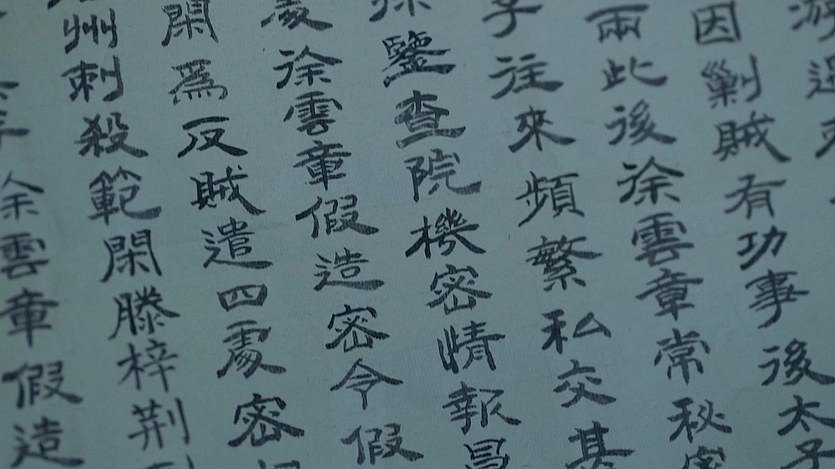 因剿賊有功事後太子
兩此後徐雲章常秘密
子往來頻繁私交甚
鑒查院機密情報
徐雲章假造密令假
閑爲反賊遣四處密
州刺殺範閑滕梓荆
徐雲章假造